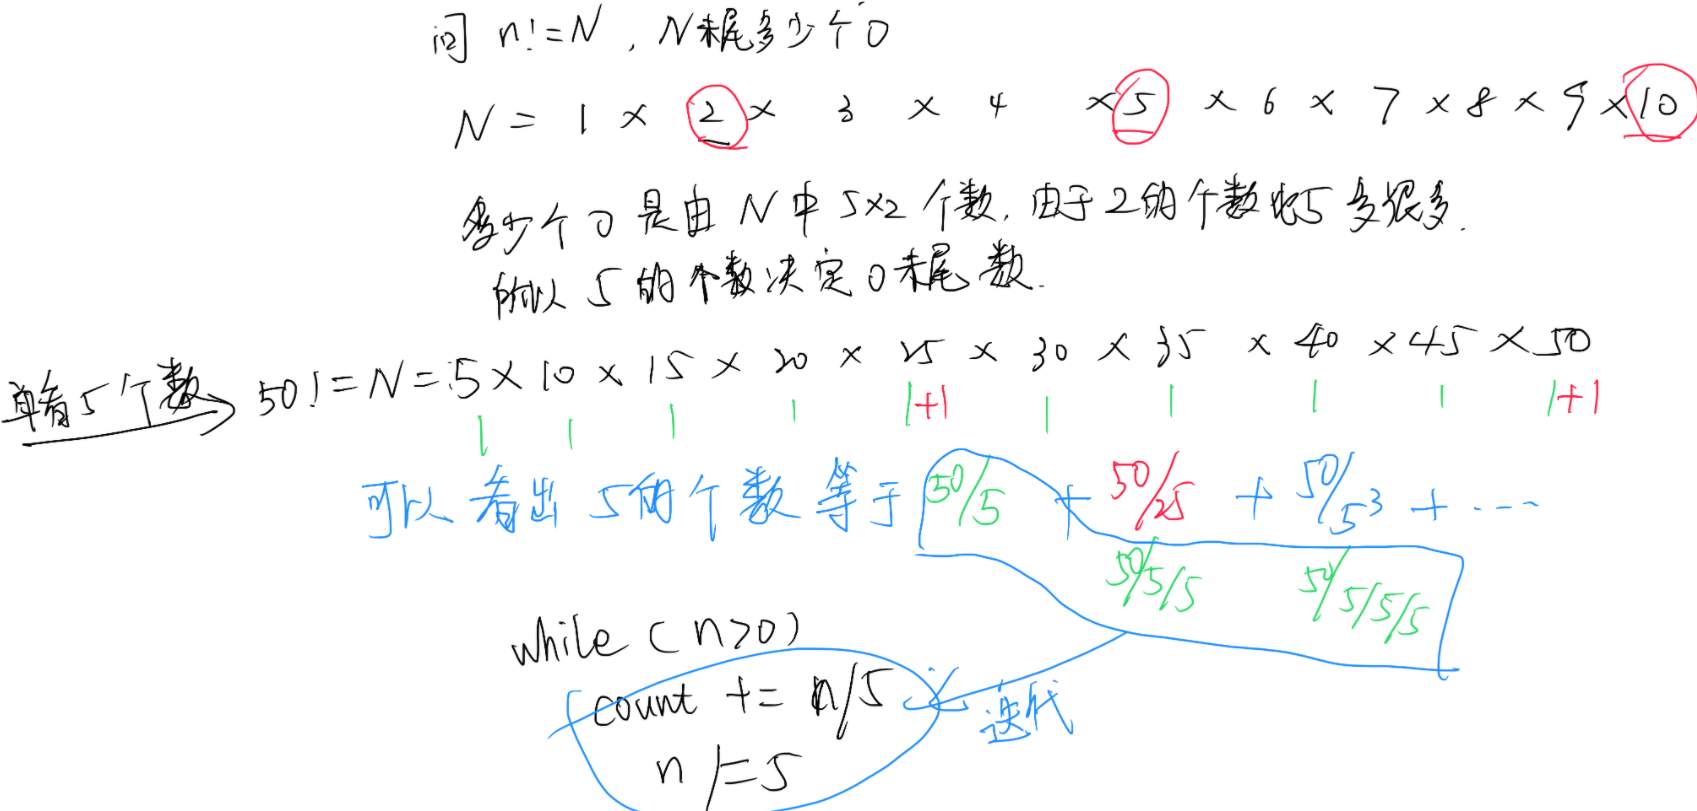 问 n!=N, N末尾多少个0
N = 1 × 2 × 3 × 4 × 5 × 6 × 7 × 8 × 9 × 10
多少个0是由N中5×2个数.由于2的个数比5多很多.
所以5的个数决定0末尾数.
单看5个数 → 50!=N=5×10×15×20×25×30×35×40×45×50
1 1 1 1 1+1 1 1 1 1 1+1
可以看出5的个数等于 50/5 + 50/25 + 50/5³ + ...
50/5/5 50/5/5/5
while(n>0)
count += n/5 迭代
n /= 5